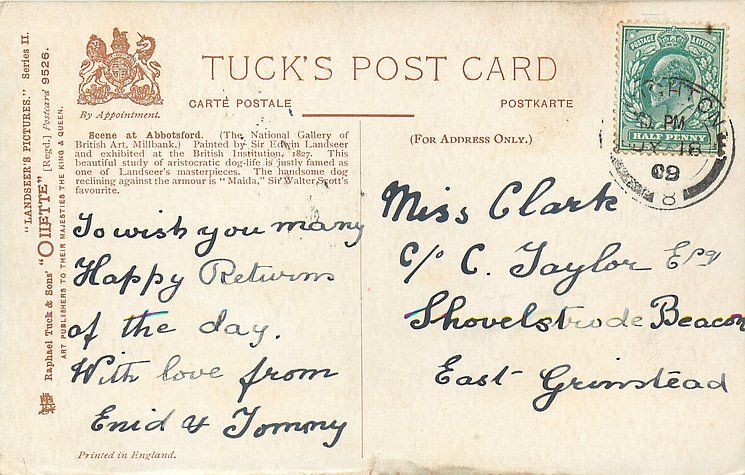 "LANDSEER'S PICTURES." Series II.
Raphael Tuck & Sons' "OILETTE" [Regd.] Postcard 9526.
ART PUBLISHERS TO THEIR MAJESTIES THE KING & QUEEN.
By Appointment.
TUCK'S POST CARD
CARTE POSTALE
POSTKARTE
Scene at Abbotsford. (The National Gallery of
British Art, Millbank.) Painted by Sir Edwin Landseer
and exhibited at the British Institution, 1827. This
beautiful study of aristocratic dog-life is justly famed as
one of Landseer's masterpieces. The handsome dog
reclining against the armour is "Maida," Sir Walter Scott's
favourite.
To wish you many
Happy Returns
of the day.
With love from
Enid & Tommy
Printed in England.
(FOR ADDRESS ONLY.)
POSTAGE
HALF PENNY
PM
JY 18
09
8
Miss Clark
c/o C. Taylor Esq
Shovelstrode Beacon
East Grinstead